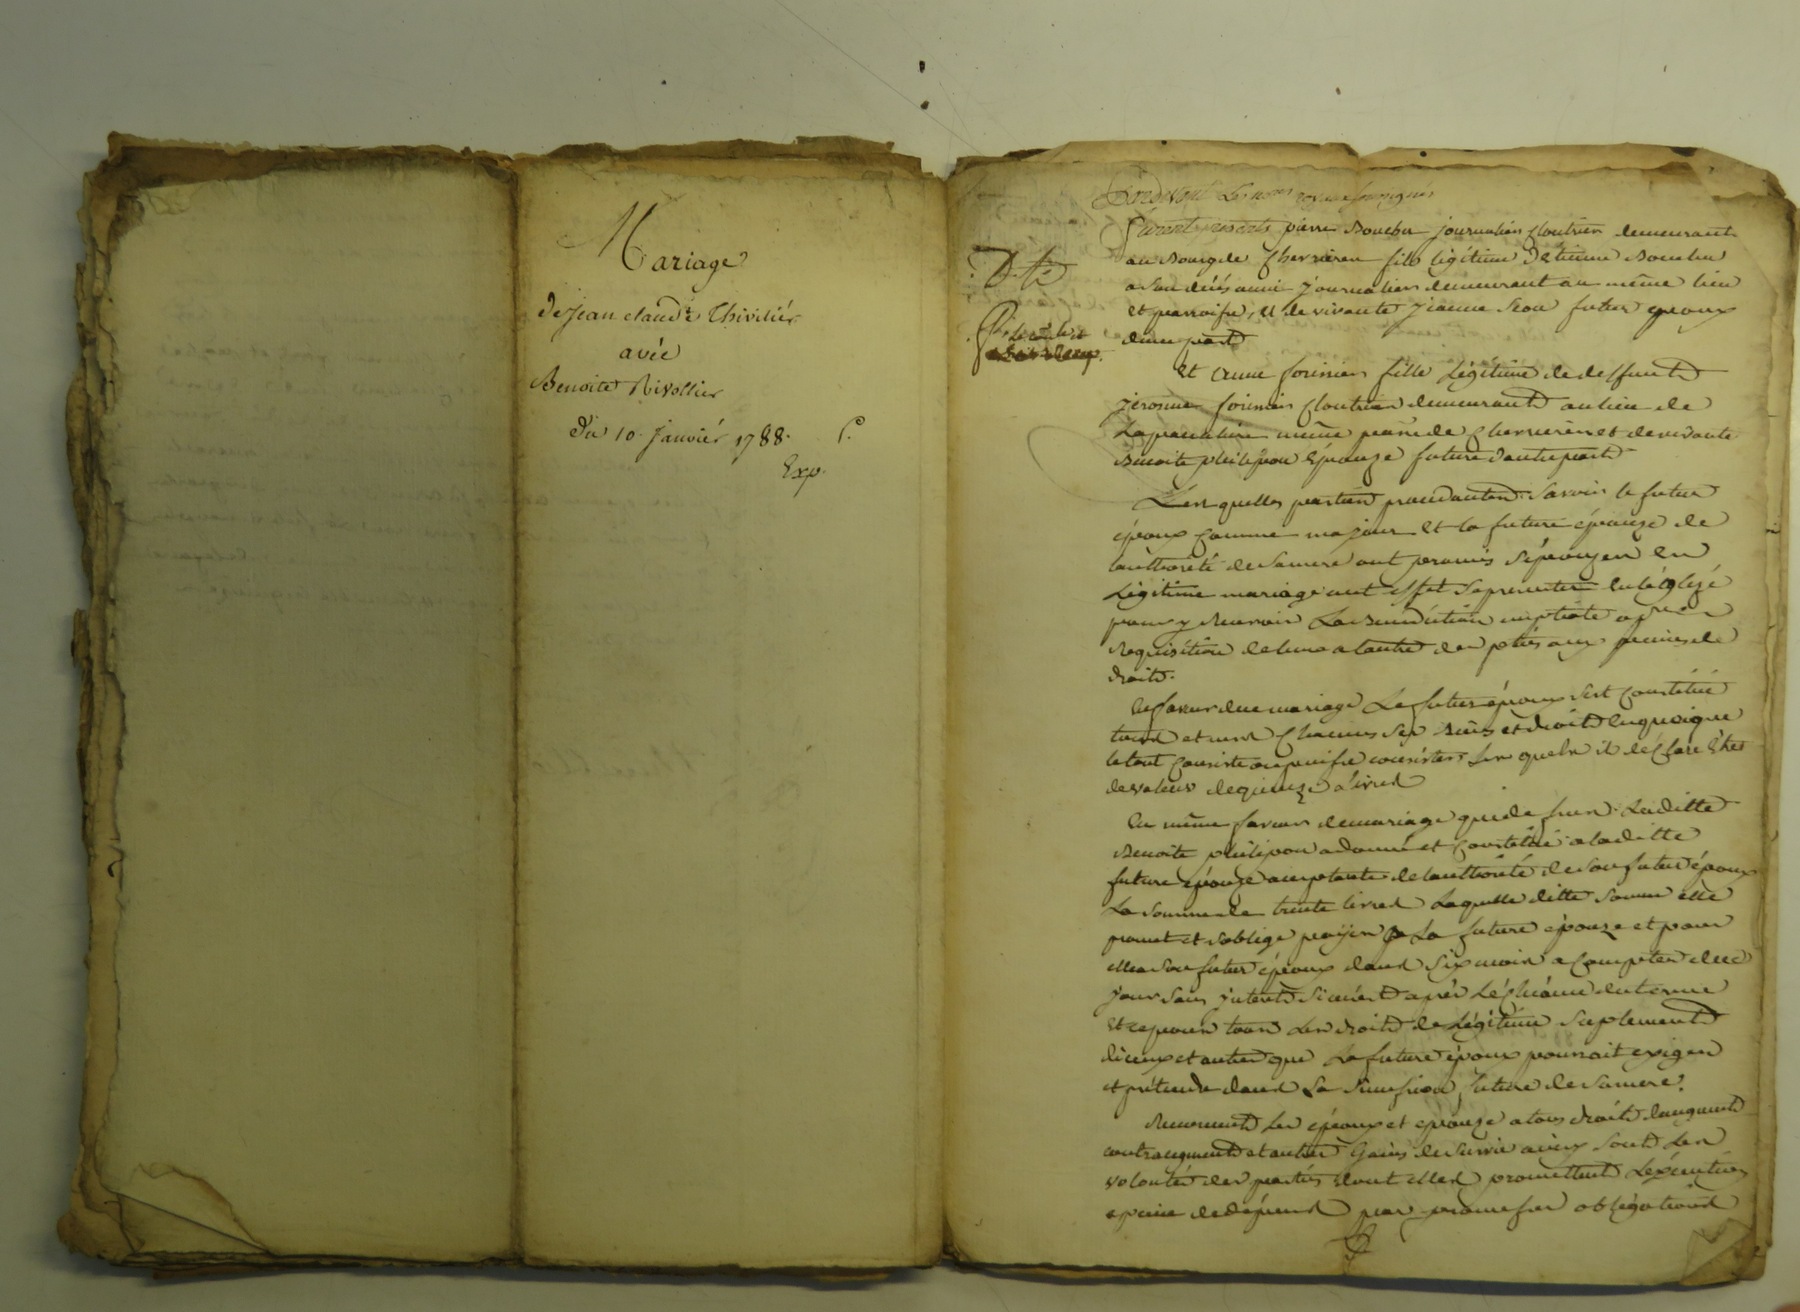 Mariage
de Jean claude Thivilier
avéc
Benoite Rivollier
du 10. Janviér 1788. C.
Exp.
Pardevant Les nores royaux soussignés
furent présents pierre Boucher journalier Cloutrier demeurant
au Bourg de Cherrieren fils légitime d'étienne Boucher
a son décés aussi journalier demeurant au même lieu
et parroisse, et de vivante jeanne futur epoux
dune part
Et anne fille légitime de deffunt
jerosme Cloutrier demeurant au lieu de
même parsse de Cherrieren et de vivante
Benoite philipon épouze future dautrepart
Lesquelles parties procedantes Savoir le futur
époux Comme majeur et la future épouze de
lauthorité de sa mere ont promis sépouzer en
légitime mariage aut effet se presenter en léglize
pour y recevoir La Benediction nuptiale a
Requisition delune a lautre des ptiés aux peines de
droit.
En faveur duce mariage Le futur époux sest Constitué
tous et uns Chacuns ses Biens et droits enquoique
le tout Consiste ou puisse consister, Les quels il déClare être
de valeur de quinze livres
En même faveur de mariage que de fur Laditte
Benoite philipon a donné et Constitué a laditte
future épouze acceptante de lauthorité de son futur époux
La somme de trente livres Laquelle ditte somme elle
promet et soblige payer a La future épouze et pour
elle a son futur époux dans six mois a Compter de ce
jour sans jnterets si cenést aprés LéChéance du terme
Et ce pour tous Les droits de légitime suplement
diceux et autres que La future époux pourrait exiger
et prétendre dans La succession future de sa mere.
Renoncent Les époux et epouze a tous droits daugment
contraugment et autres Gains de survie ainsy sont Les
volontés des parties dont elles promettent Léxécution
a peine de dépens par promesses obligations